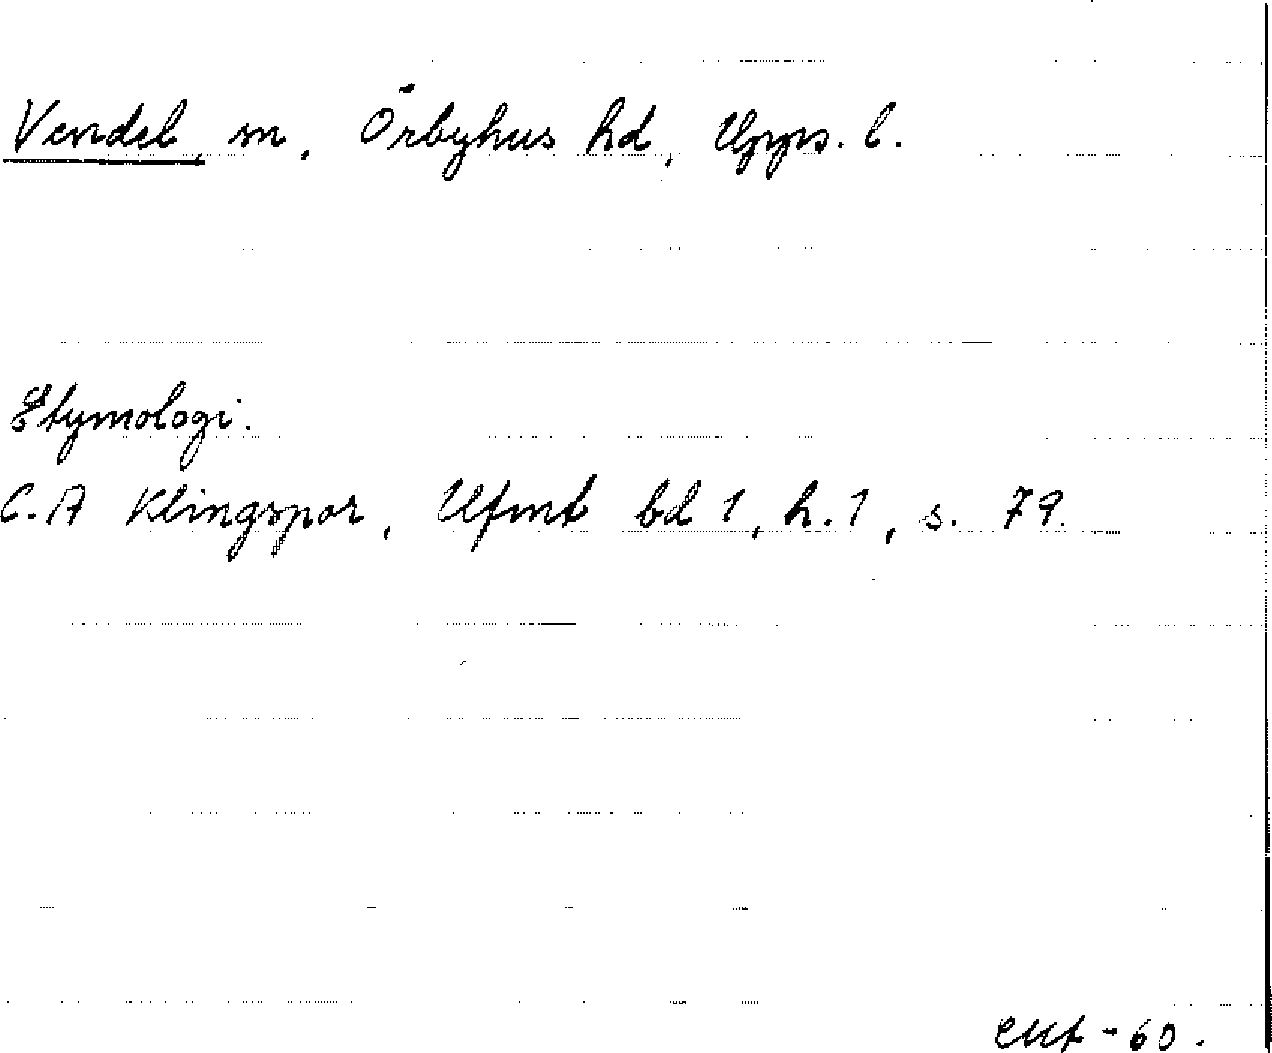 Vendel, sn, Örbyhus hd, Upps. l.
Etymologi.
C.A Klingspor, Ufmt bd 1, h. 1, s. 79.
-60.